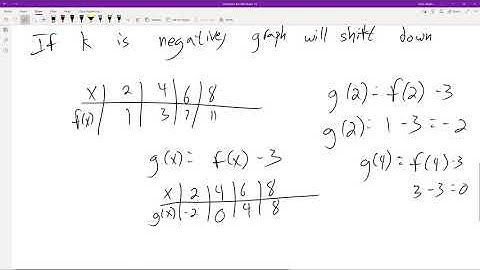 If k is negative, graph will shift down
x 2 4 6 8
f(x) 1 3 7 11
g(2) = f(2) - 3
g(2) = 1 - 3 = -2
g(x) = f(x) - 3
g(4) = f(4) - 3
3 - 3 = 0
x 2 4 6 8
g(x) -2 0 4 8